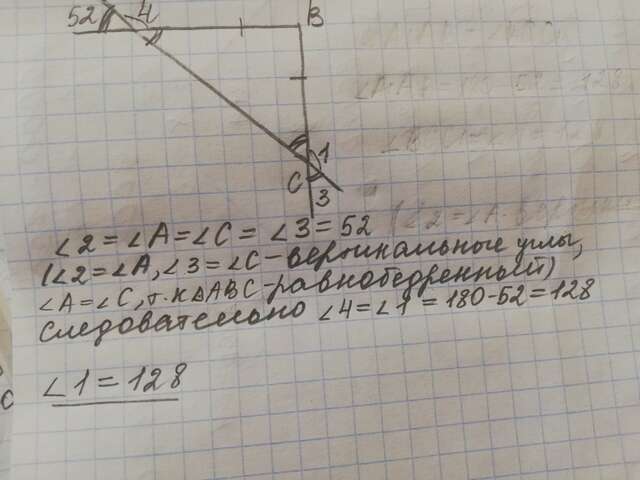 52 4 B
1
C
3
∠2=∠A=∠C=∠3=52
(∠2=∠A,∠3=∠C-вертикальные углы,
∠A=∠C, т.к △ABC-равнобедренный)
следовательно ∠4=∠1=180-52=128
∠1=128
C